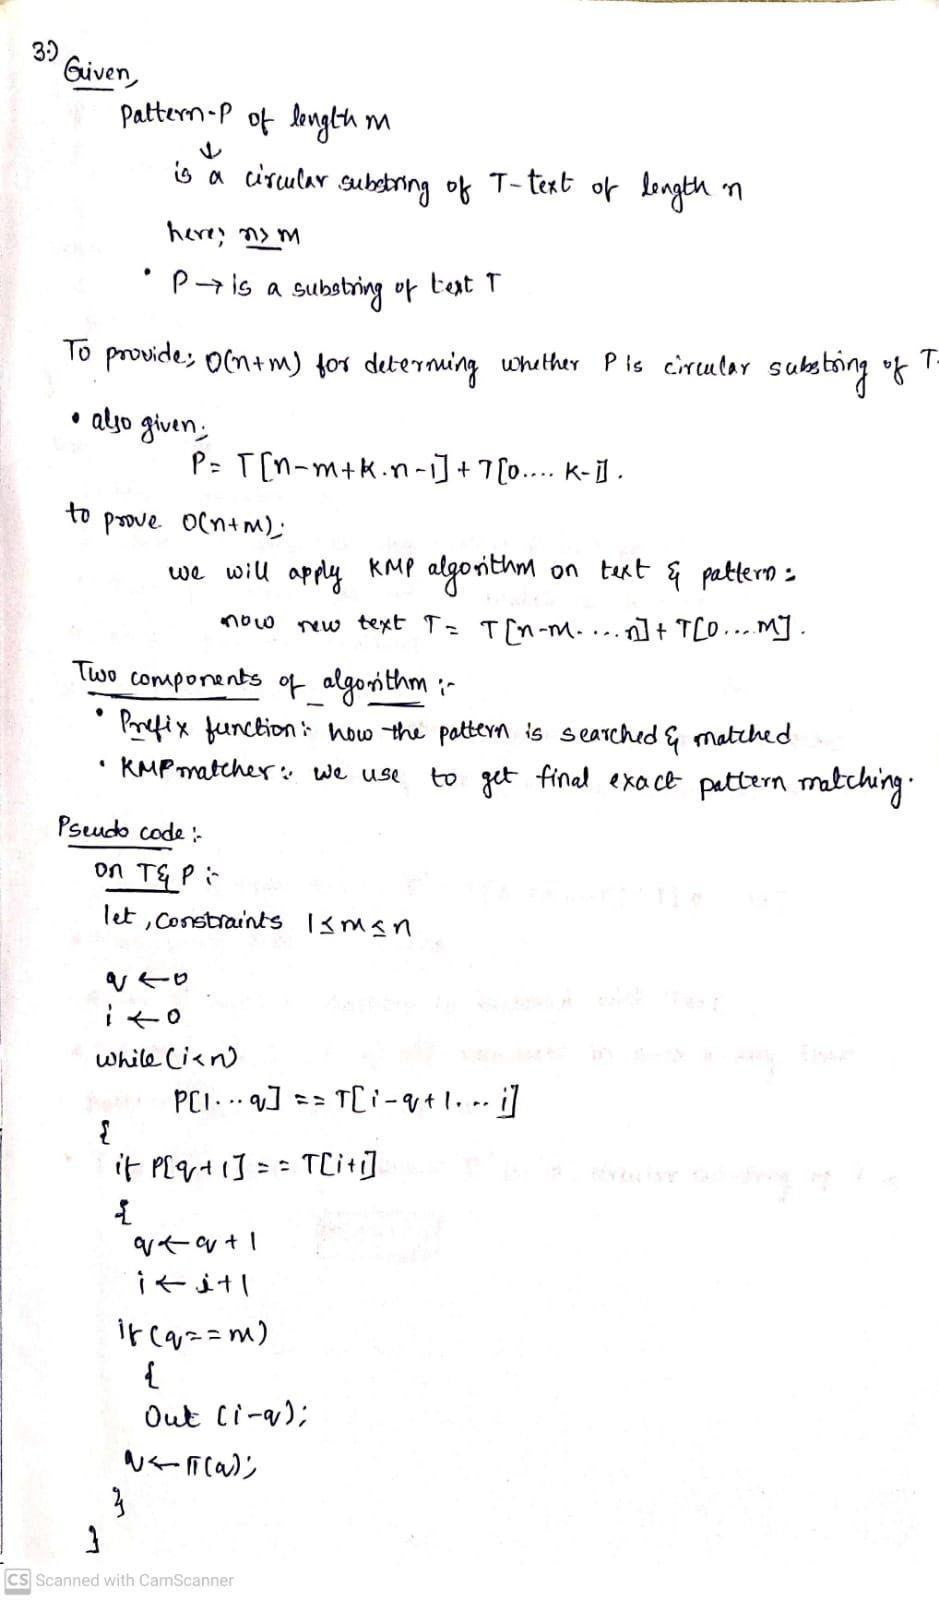 3.)
Given,
Pattern-P of length m
↓
is a circular substring of T-text of length n
here; n>m
• P → is a substring of text T
To provide; O(n+m) for determing whether P is circular substring of T.
• also given;
P = T[n-m+k.n-1] + T[0.... k-1].
to prove O(n+m);
we will apply KMP algorithm on text & pattern:
now new text T = T[n-m.....n] + T[0....m].
Two components of algorithm :-
• Prefix function: how the pattern is searched & matched
• KMP matcher: we use to get final exact pattern matching.
Pseudo code :-
on T & P :-
let, constraints 1≤m≤n
q ← 0
i ← 0
while (i<n)
P[1...q] == T[i-q+1.... i]
{
if P[q+1] == T[i+1]
{
q ← q+1
i ← i+1
if (q==m)
{
Out (i-q);
q ← π(q);
}
}
CS Scanned with CamScanner